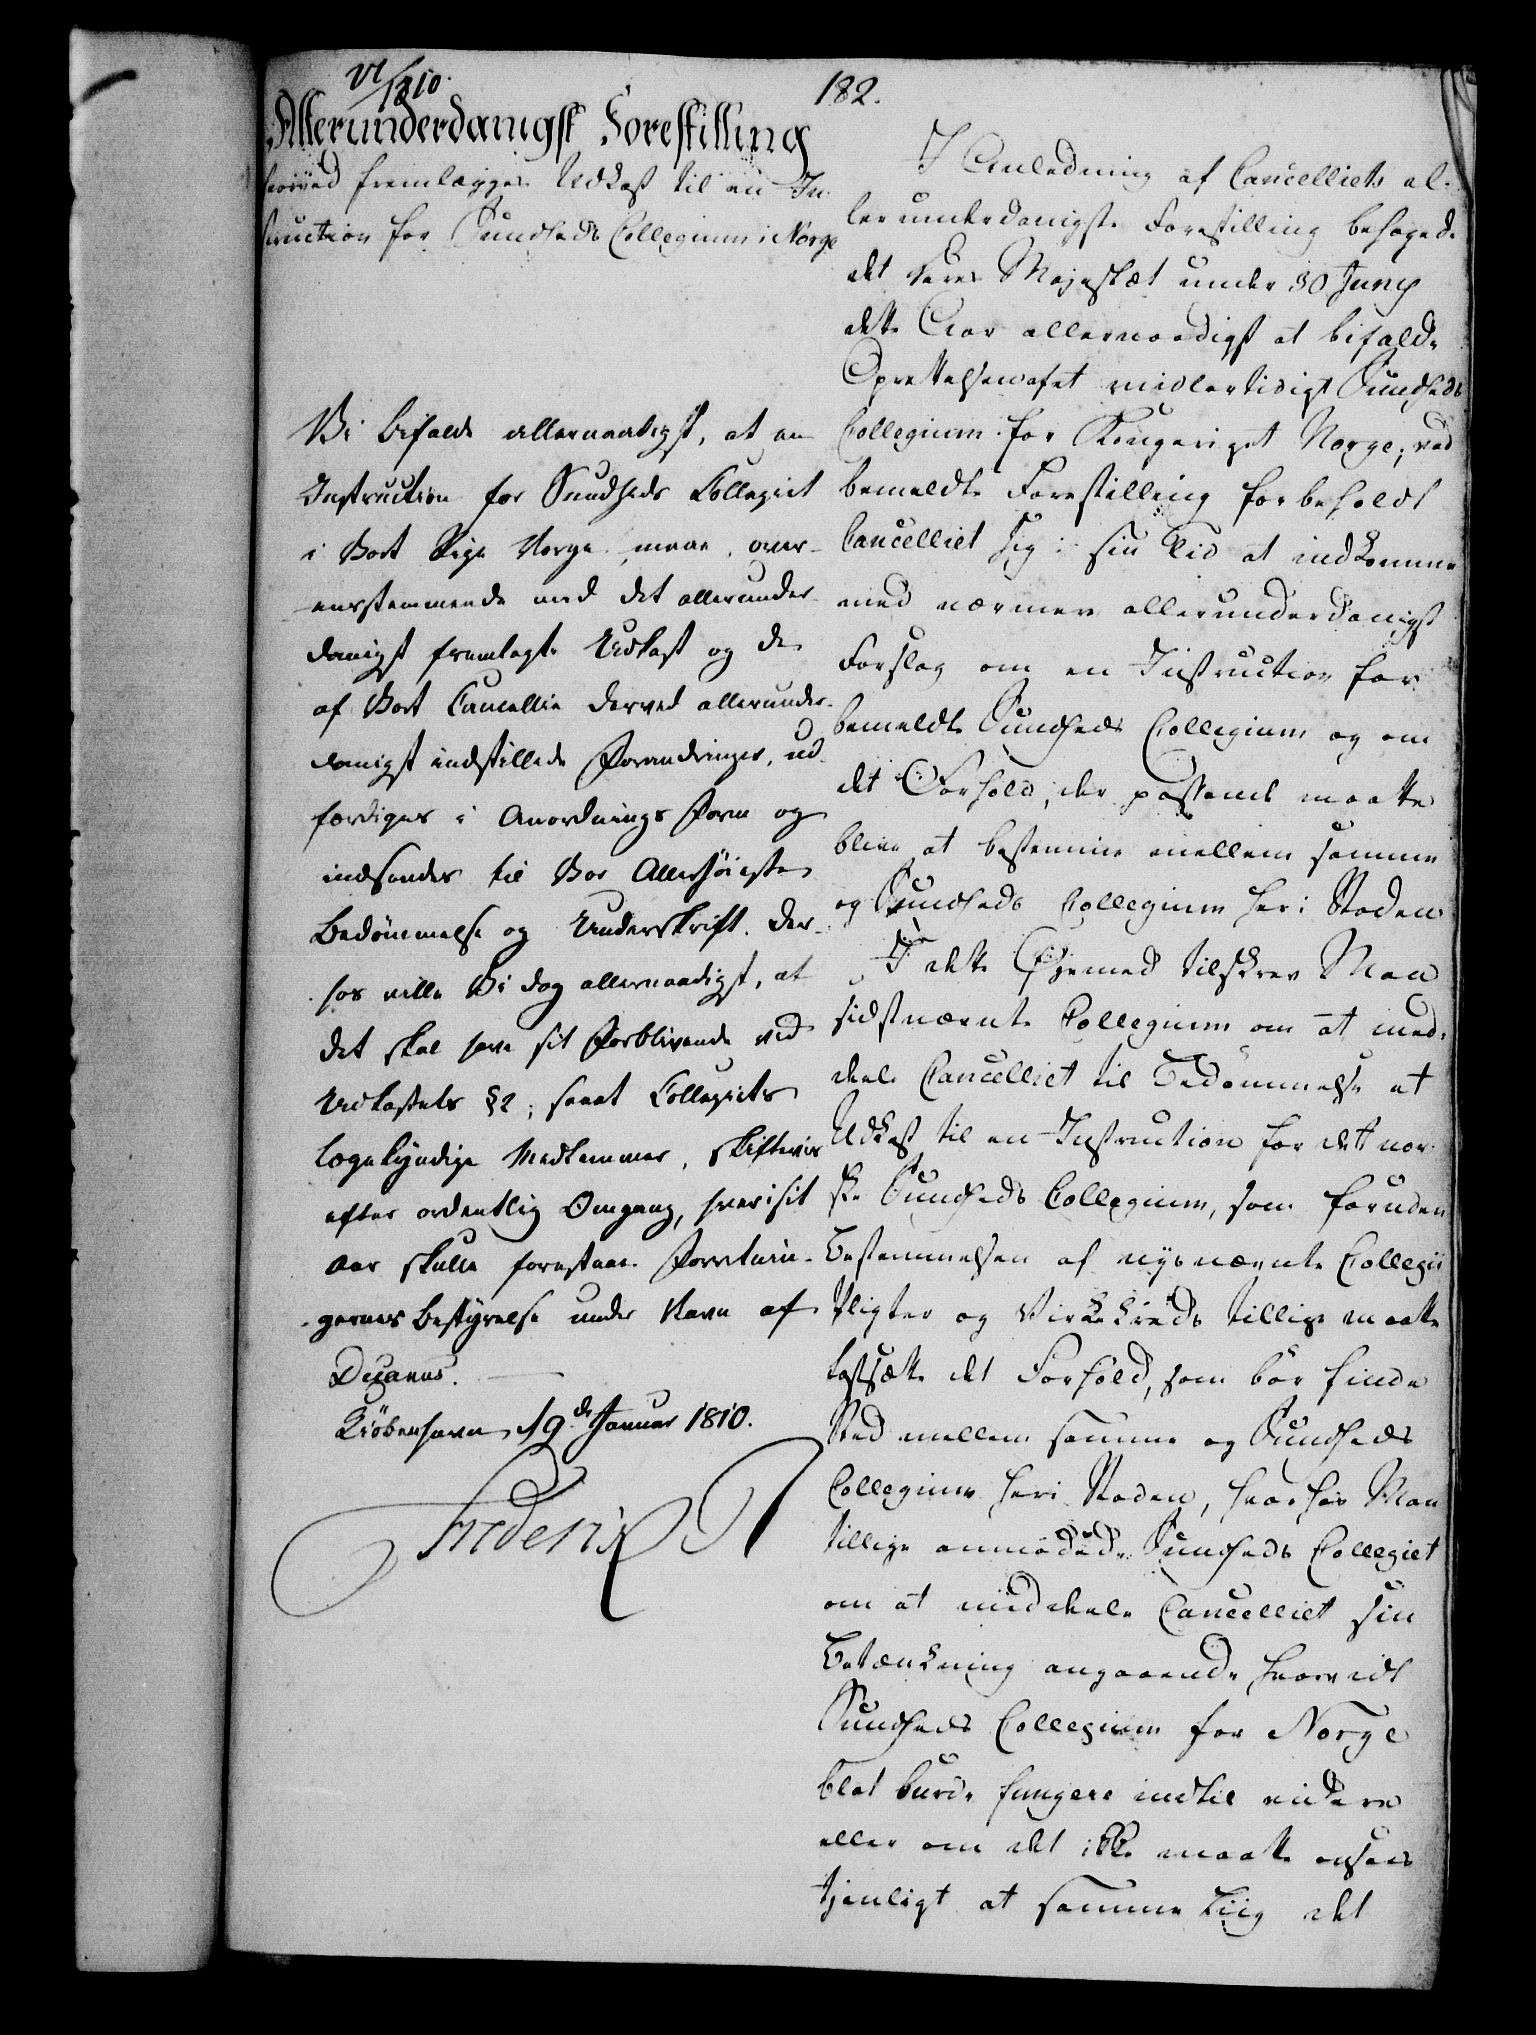 VI/1810.
182.
Allerunderdanigst Forestilling
hvorved fremlægges Udkast til en In-
struction for Sundheds Collegium i Norge
Vi bifalde allernaadigst, at en
Instruction for Sundheds Collegiet
i Vort Rige Norge maae, over-
eensstemmende med det allerunder-
danigst fremlagte Udkast og de
af Vort Cancellie derved allerunder-
danigst indstillede Forandringer, ud-
færdiges i Anordnings Form og
indsendes til Vor Allerhøieste
Bedømmelse og Underskrift. Der-
hos ville Vi dog allernaadigst, at
det skal have sit Forblivende ved
Udkastets § 2, samt Collegiets
lægekyndige Medlemmer, skifteviis
efter ordentlig Omgang, hver i sit
Aar skulle forestaae Forretnin-
gernes Bestyrelse under Navn af
Decanus.
Kiöbenhavn, 19de Januar 1810.
Frederik R
I Anledning af Cancelliets al-
lerunderdanigste Forestilling behagede
det Deres Majestæt under 30 Juny
dette Aar allernaadigst at bifalde
Oprettelsen af et midlertidigt Sundheds
Collegium for Kongeriget Norge; ved
bemeldte Forestilling forbeholdt
Cancelliet sig i sin Tid at indkomme
med nærmere allerunderdanigst
Forslag om en Instruction for
bemeldte Sundheds Collegium og om
det Forhold, der passende maatte
blive at bestemme mellem samme
og Sundheds Collegium her i Staden
I dette Øjemed tilskrev Man
sidstnævnte Collegium om at med-
deele Cancelliet til Bedømmelse et
Udkast til en Instruction for det nor-
ske Sundheds Collegium, som foruden
Bestemmelsen af nysnævnte Collegii
Pligter og Virkekreds tillige maatte
fastsætte det Forhold, som bør finde
Sted mellem samme og Sundheds
Collegium her i Staden, hvorhos Man
tillige anmodede Sundheds Collegiet
om at meddeele Cancelliet sin
Betænkning angaaende hvorvidt
Sundheds Collegium for Norge
blot burde fungere indtil videre
eller om det ikke maatte ansees
tjenligt at samme Tiig det